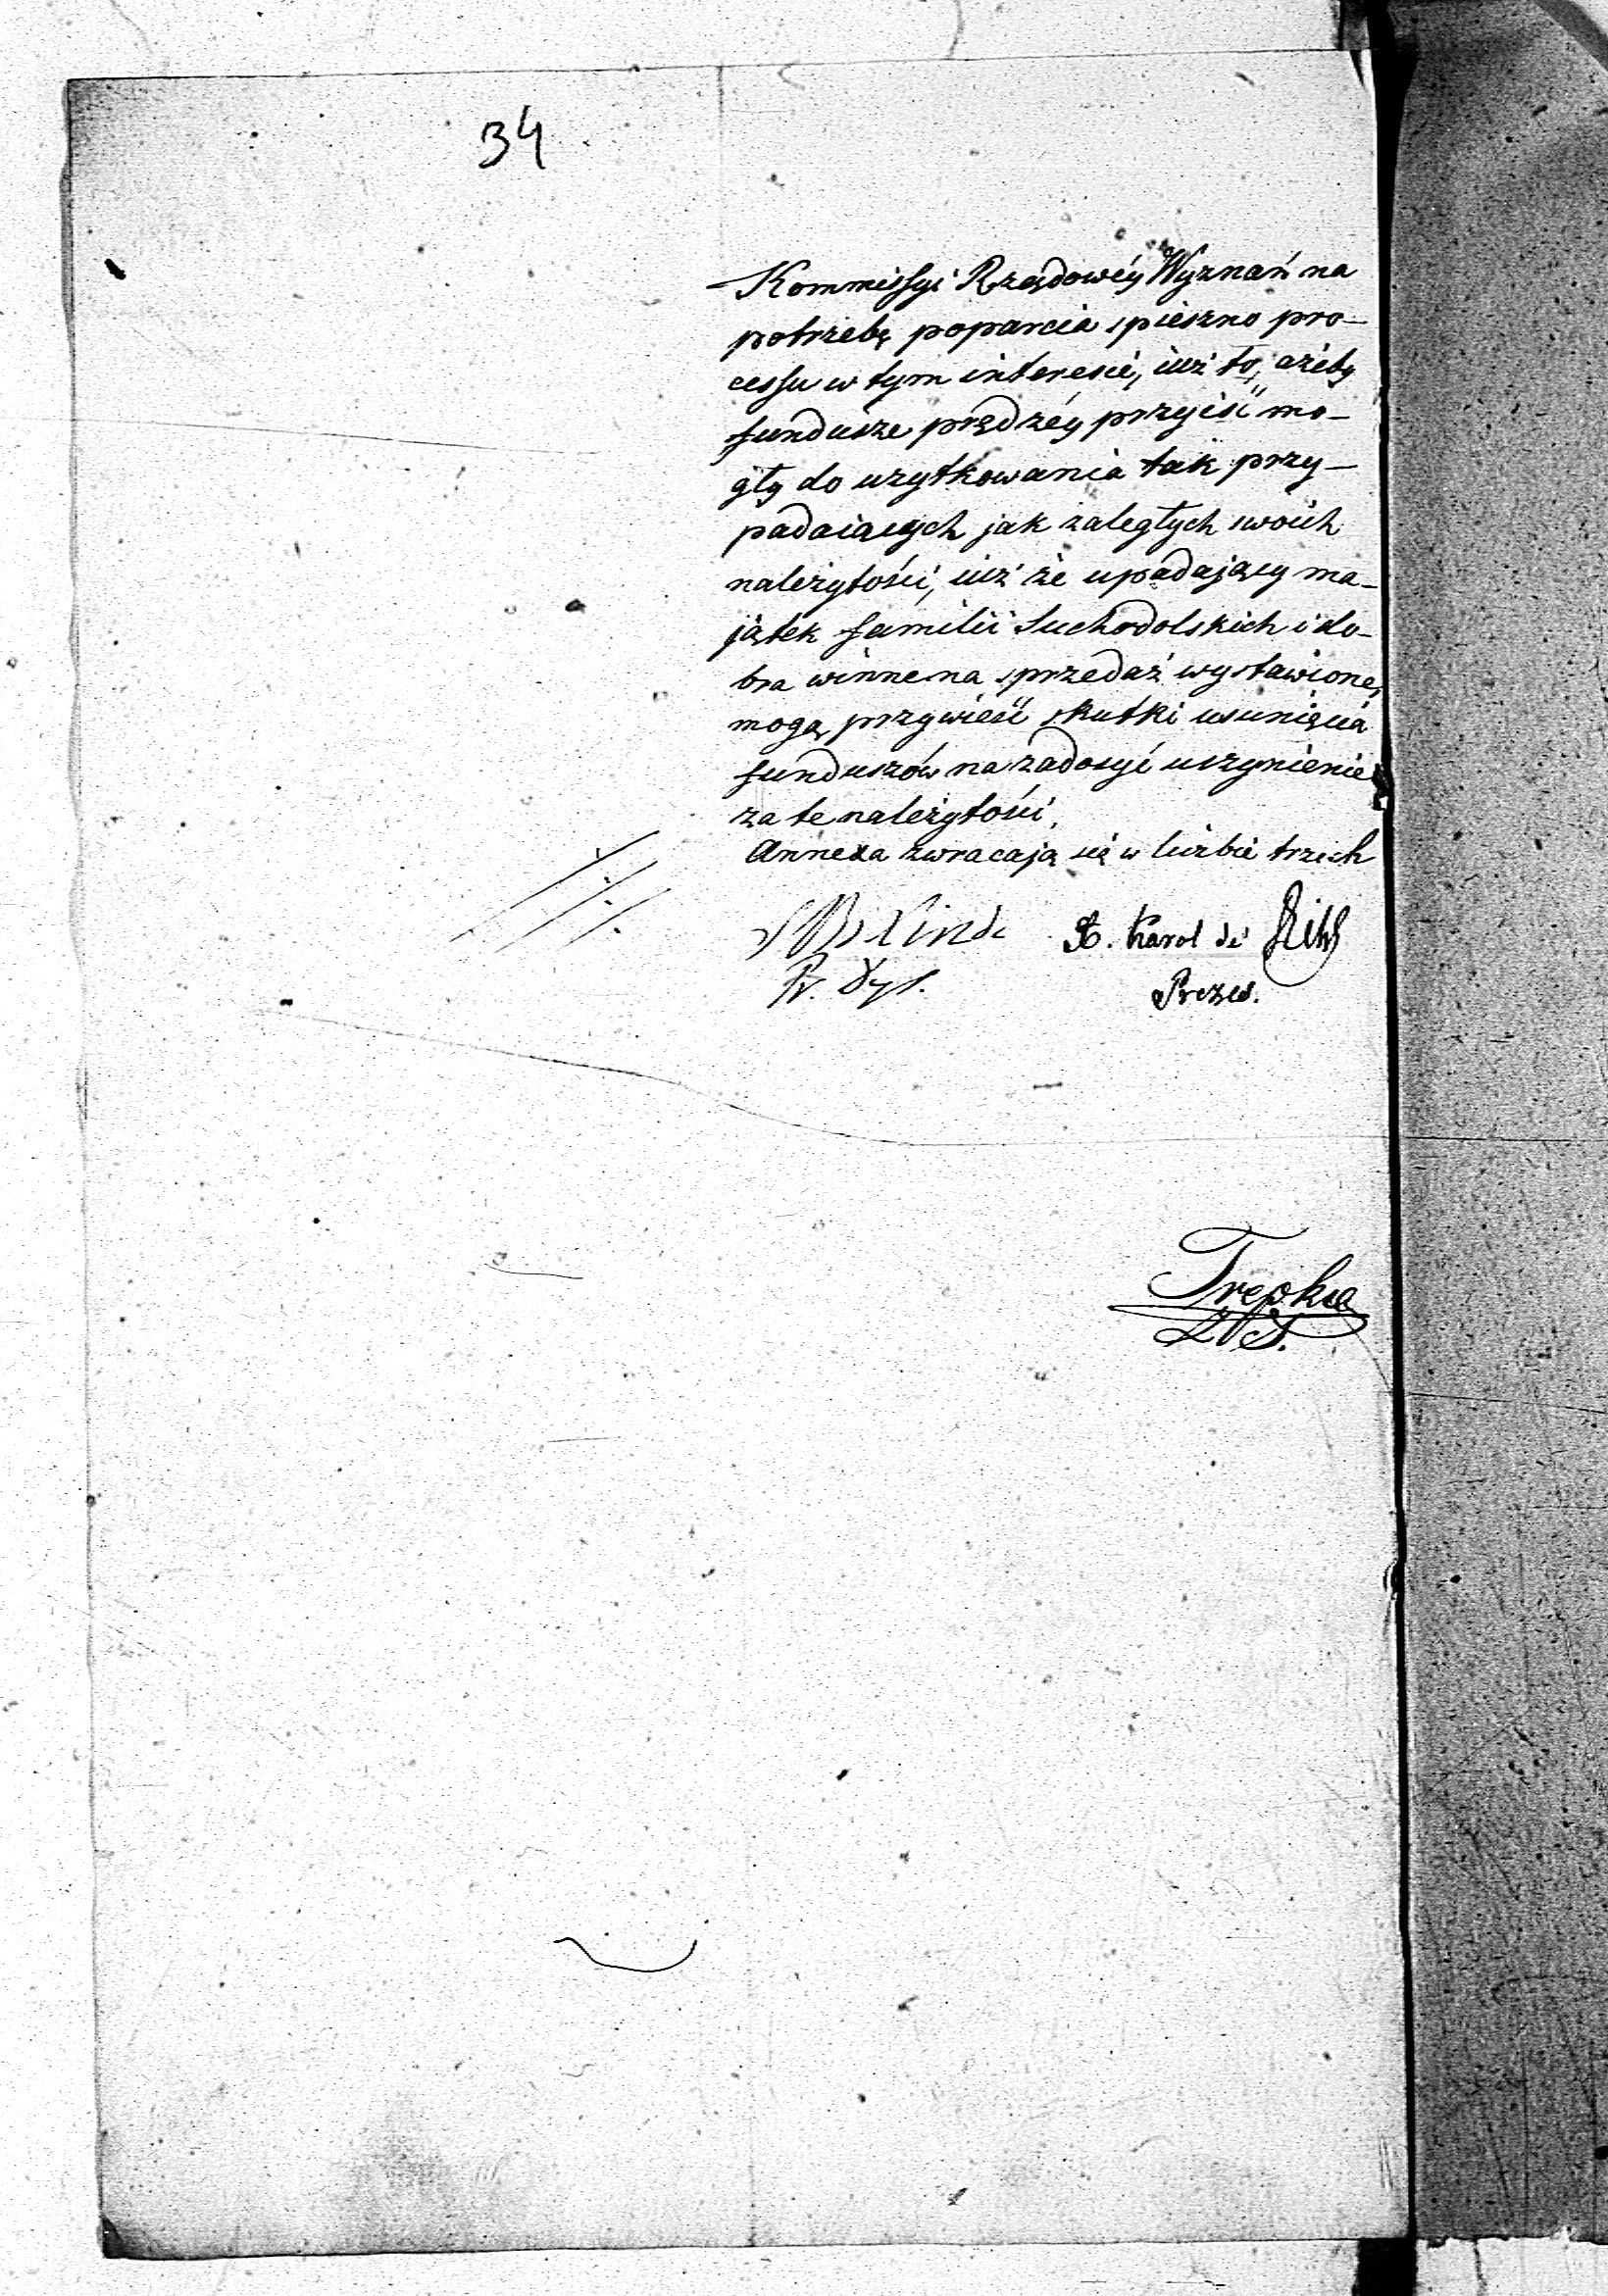 34
Kommissyi Rządowéy Wyznań na
potrzebę poparcia spieszno pro-
cessu w tym interesie, iuż to, ażeby
fundusze prędzéy przyiść mo-
gły do uzytkowania tak przy-
padaiących jak zaległych swoich
należytości, iuż że upadający ma-
jątek familii Suchodolskich i do-
bra winne na sprzedaż wystawione,
mogą przywieść skutki usunięcia
funduszów na zadosyć uczynienie
za te należytości.
Annexa zwracają się w liczbie trzech
X. Karol de
Prezes.
Trepka